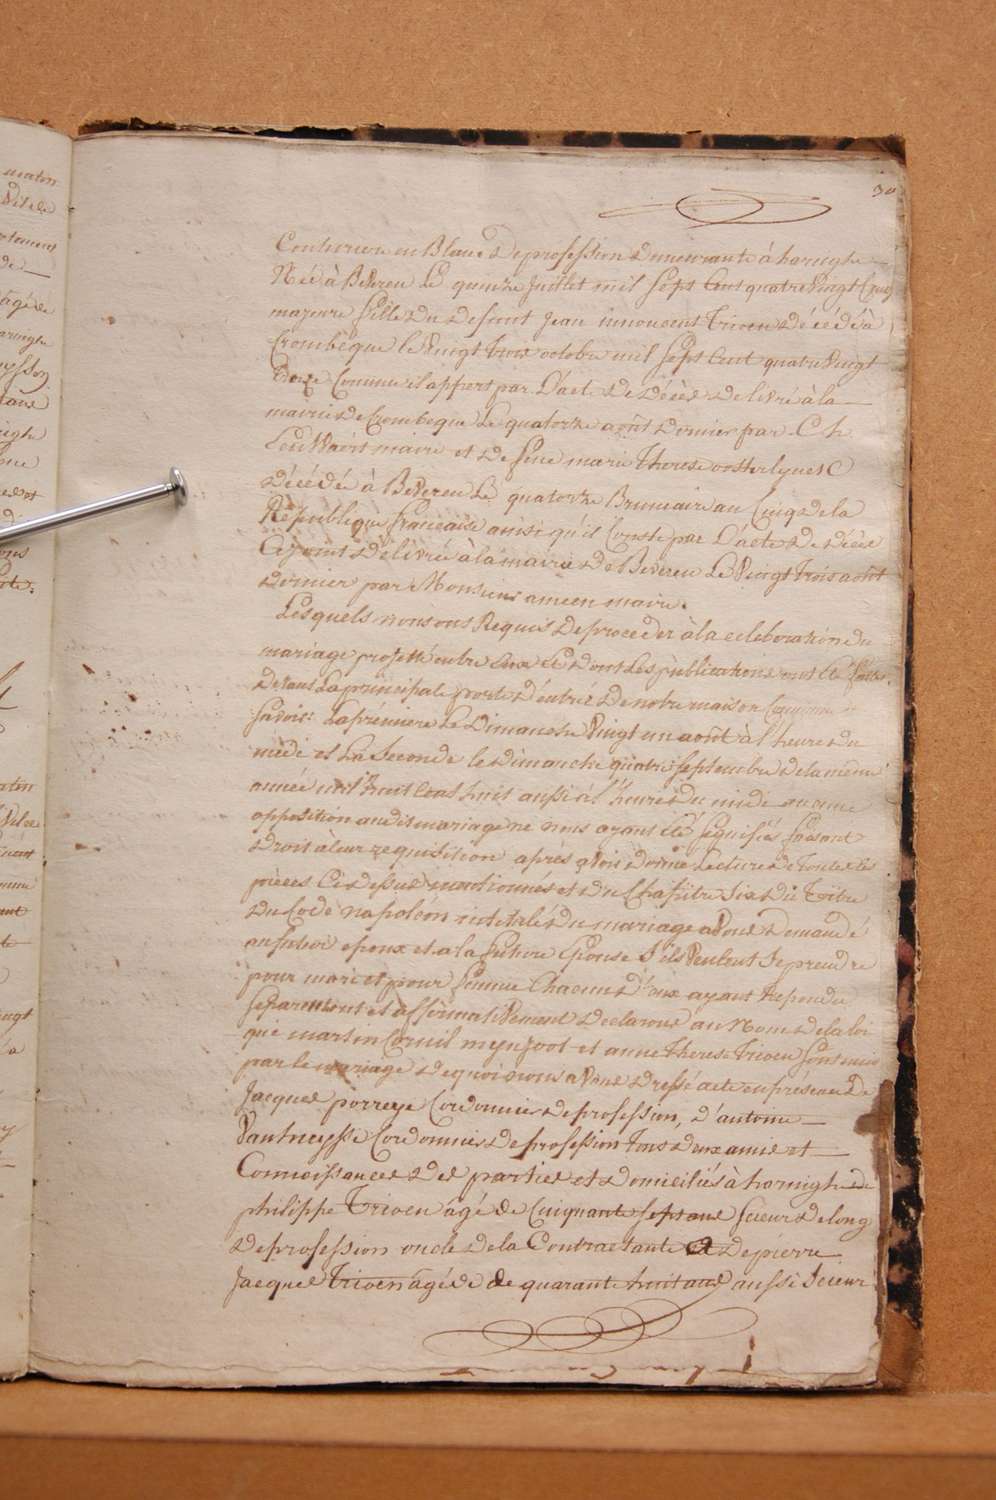 30
Couturiere en Blanc de profession demeurante à haringhe
Née à Beveren Le quinze Juillet mil sept Cent quatre Vingt Cinq
majeure fille du defunt Jean innoucent Trioen décédé à
Crombeque le Vingt trois octobre mil sept Cent quatre vingt
Comme il appert par L'acte de décès delivré à la
mairie de Crombeque Le quatorze août dernier par C h
maire et de feue marie Therese oosterlynck
décédée à Beveren Le quatorze Brumaire an Cinq de la
République francaise ainsi qu'il Conste par L'acte de décès
Cijoint délivré à la mairie de Beveren Le Vingt trois août
dernier par Monsieur ameen maire.
Lesquels nous ons Requis de proceder à la celeboration du
mariage projetté entre Eux et dont Les publications ont été faites
devant La principale porte d'entrée de notre maison Commune
savoir: La premiere Le Dimanche Vingt un août à l'heure du
midi et La Seconde le dimanche quatre septembre de la même
année mil huit Cens huit aussi à l'heure du midi aucune
opposition audit mariage ne nous ayant été signifiés faisant
droit à leur requisition après avoir donné Lecture de Toutes les
pieces Ci dessus mentionnés et du Chapitre six du Tïtre
du Code napoléon intitulés du mariage avons demandé
au futur epoux et a la future Epouse s'ils veulent se prendre
pour mari et pour femme Chacun d'eux ayant repondu
separement et affirmativement declarons au Nom de la loi
que martin Cornil meynfoot et anne Therese Trioen sont unis
par le mariage de quoi nous avons dressé acte en présence de
Jacques porreye Cordonnier de profession, d'antoine
Vantneysse Cordonnier de profession tous deux amis et
Connoissances des parties et domiciliés à haringhe de
philippe Trioen âgé de Cinquante sept ans scieur de long
de profession oncle de la Contractante et de pierre
Jacques Trioen âgé de de quarante huit ans aussi Scieur